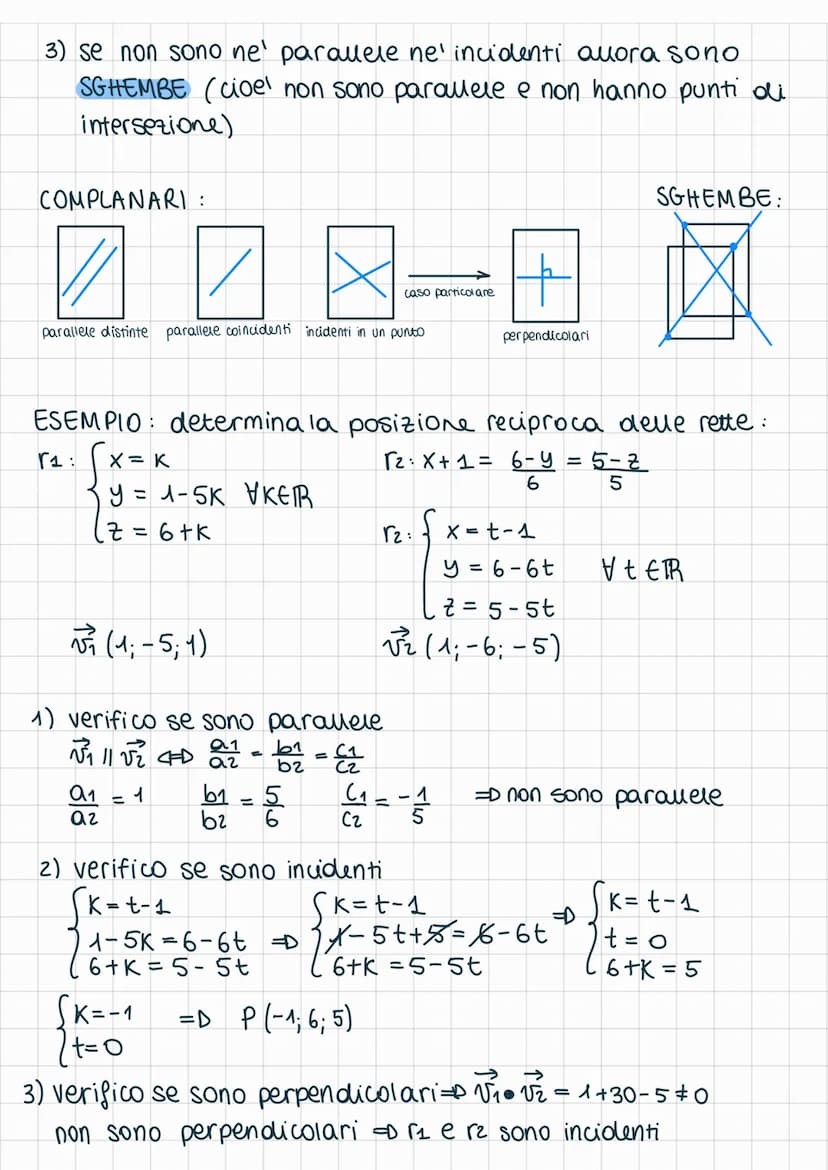 3) se non sono ne' parallele ne' incidenti allora sono
SGHEMBE (cioe' non sono parallele e non hanno punti di
intersezione)
COMPLANARI :
SGHEMBE :
caso particolare
parallele distinte parallele coincidenti incidenti in un punto
perpendicolari
ESEMPIO : determina la posizione reciproca delle rette :
r1 : { x = k
y = 1-5k ∀k∈ℝ
z = 6+k
r2 : x+1 = (6-y)/6 = (5-z)/5
r2 : { x = t-1
y = 6-6t ∀t∈ℝ
z = 5-5t
v1 (1; -5; 1) v2 (1; -6; -5)
1) verifico se sono parallele
v1 || v2 ⇔ a1/a2 = b1/b2 = c1/c2
a1/a2 = 1 b1/b2 = 5/6 c1/c2 = -1/5 ⇒ non sono parallele
2) verifico se sono incidenti
{ k = t-1
1-5k = 6-6t ⇒
6+k = 5-5t
{ k = t-1
1-5t+5 = 6-6t ⇒
6+k = 5-5t
{ k = t-1
t = 0
6+k = 5
{ k = -1 ⇒ P (-1; 6; 5)
t = 0
3) verifico se sono perpendicolari ⇒ v1 • v2 = 1+30-5 ≠ 0
non sono perpendicolari ⇒ r1 e r2 sono incidenti